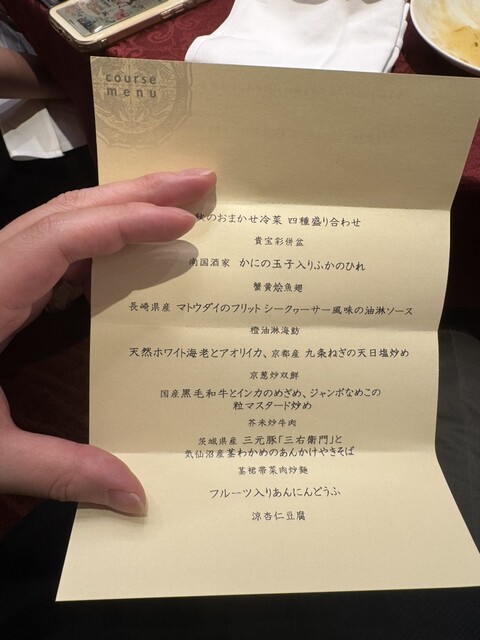 course
menu
のおまかせ冷菜 四種盛り合わせ
貴宝彩併盆
南国酒家 かにの玉子入りふかのひれ
蟹黄烩魚翅
長崎県産 マトウダイのフリット シークァーサー風味の油淋ソース
橙油淋海魴
天然ホワイト海老とアオリイカ、京都産 九条ねぎの天日塩炒め
京葱炒双鮮
国産黒毛和牛とインカのめざめ、ジャンボなめこの
粒マスタード炒め
芥末炒牛肉
茨城県産 三元豚「三右衛門」と
気仙沼産茎わかめのあんかけやきそば
茎裙帯菜肉炒麺
フルーツ入りあんにんどうふ
涼杏仁豆腐